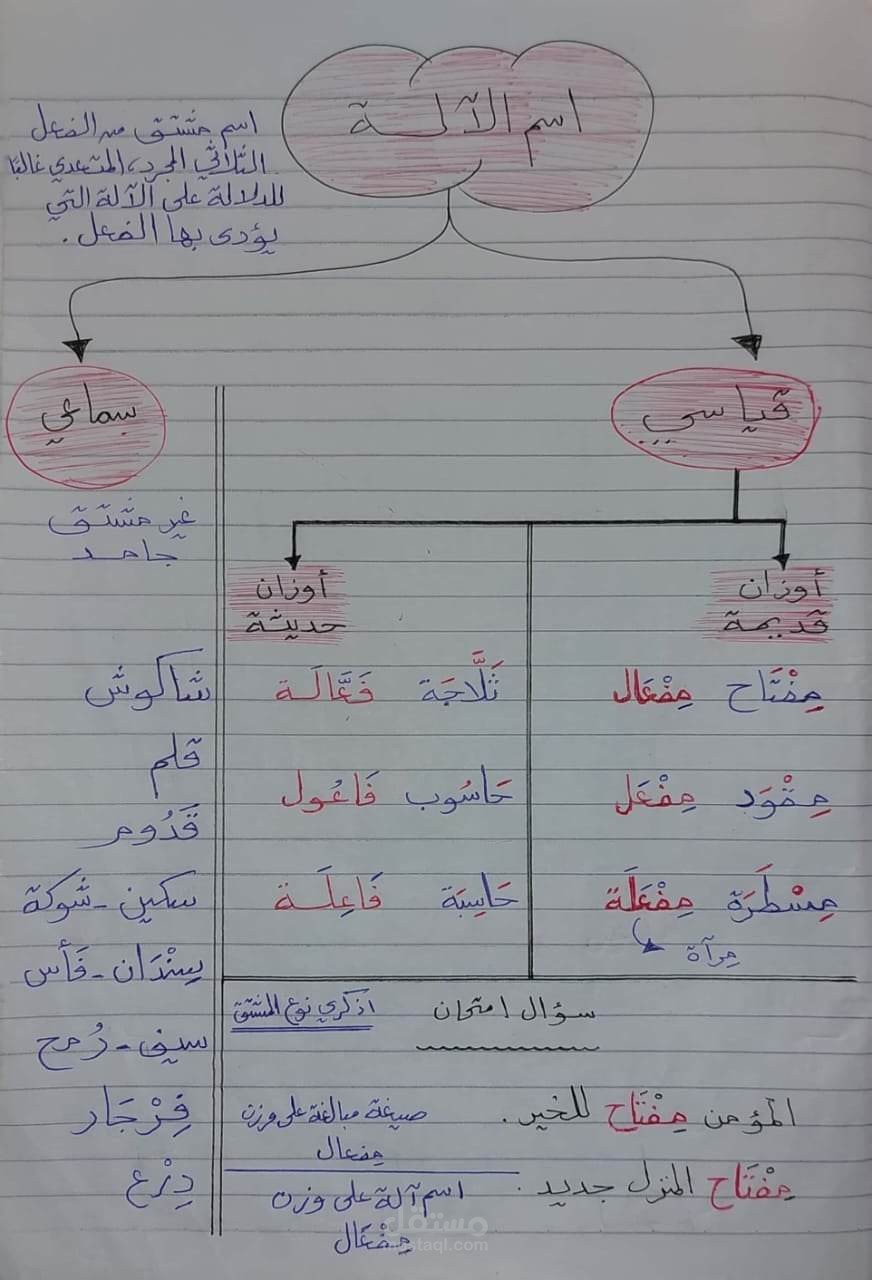 اسم الآلـة
اسم مشتق من الفعل
الثلاثي المجرد، المتعدي غالبًا
للدلالة على الآلة التي
يؤدى بها الفعل.
قياسي
سماعي
غير مشتق
جامد
أوزان
قديمة
أوزان
حديثة
مِفْتَاح مِفْعَال
مِقْوَد مِفْعَل
مِسْطَرَة مِفْعَلَة
مِرآة
ثَلَّاجَة فَعَّالَـة
حَاسُوب فَاعُول
حَاسِبَة فَاعِلَـة
شاكوش
قلم
قَدُوم
سكين - شوكة
سِنْدَان - فَأس
سيف - رُمح
فِرْجَار
دِرْع
سؤال امتحان
اذكري نوع المشتق
المؤمن مِفْتَاح للخير.
صيغة مبالغة على وزن
مِفعال
مِفْتَاح المنزل جديد.
اسم آلة على وزن
مِفْعَال
مستقل
mostaql.com